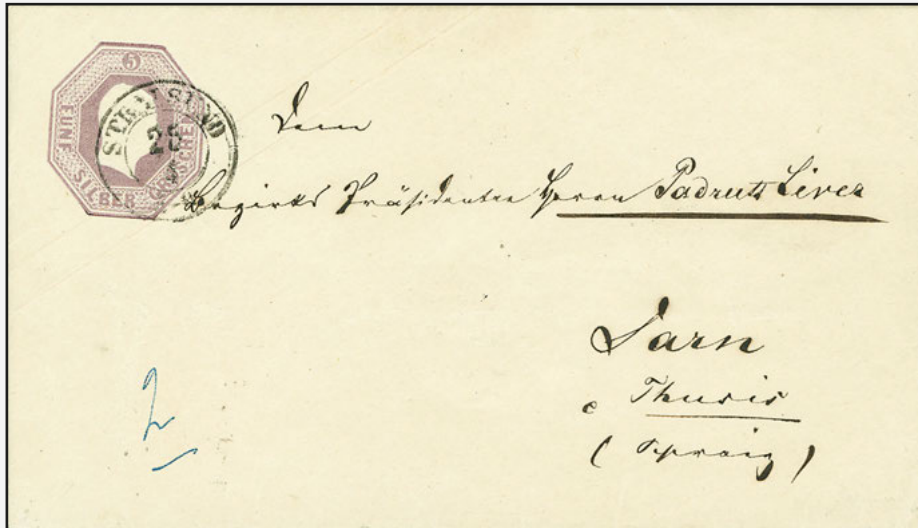 5
FÜNF SILBER GROSCHEN
STRALSUND
28
Dem
Bezirks Präsidenten Herrn Padrutt Liver
Sarn
Thusis
( Schweiz )
2